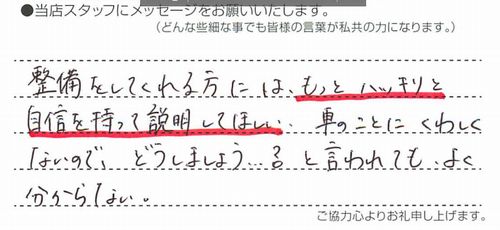 ●当店スタッフにメッセージをお願いいたします。
（どんな些細な事でも皆様の言葉が私共の力になります。）
整備をしてくれる方には、もっとハッキリと
自信を持って説明してほしい。車のことにくわしく
ないので、どうしましょう…？と言われても、よく
分からない。
ご協力心よりお礼申し上げます。